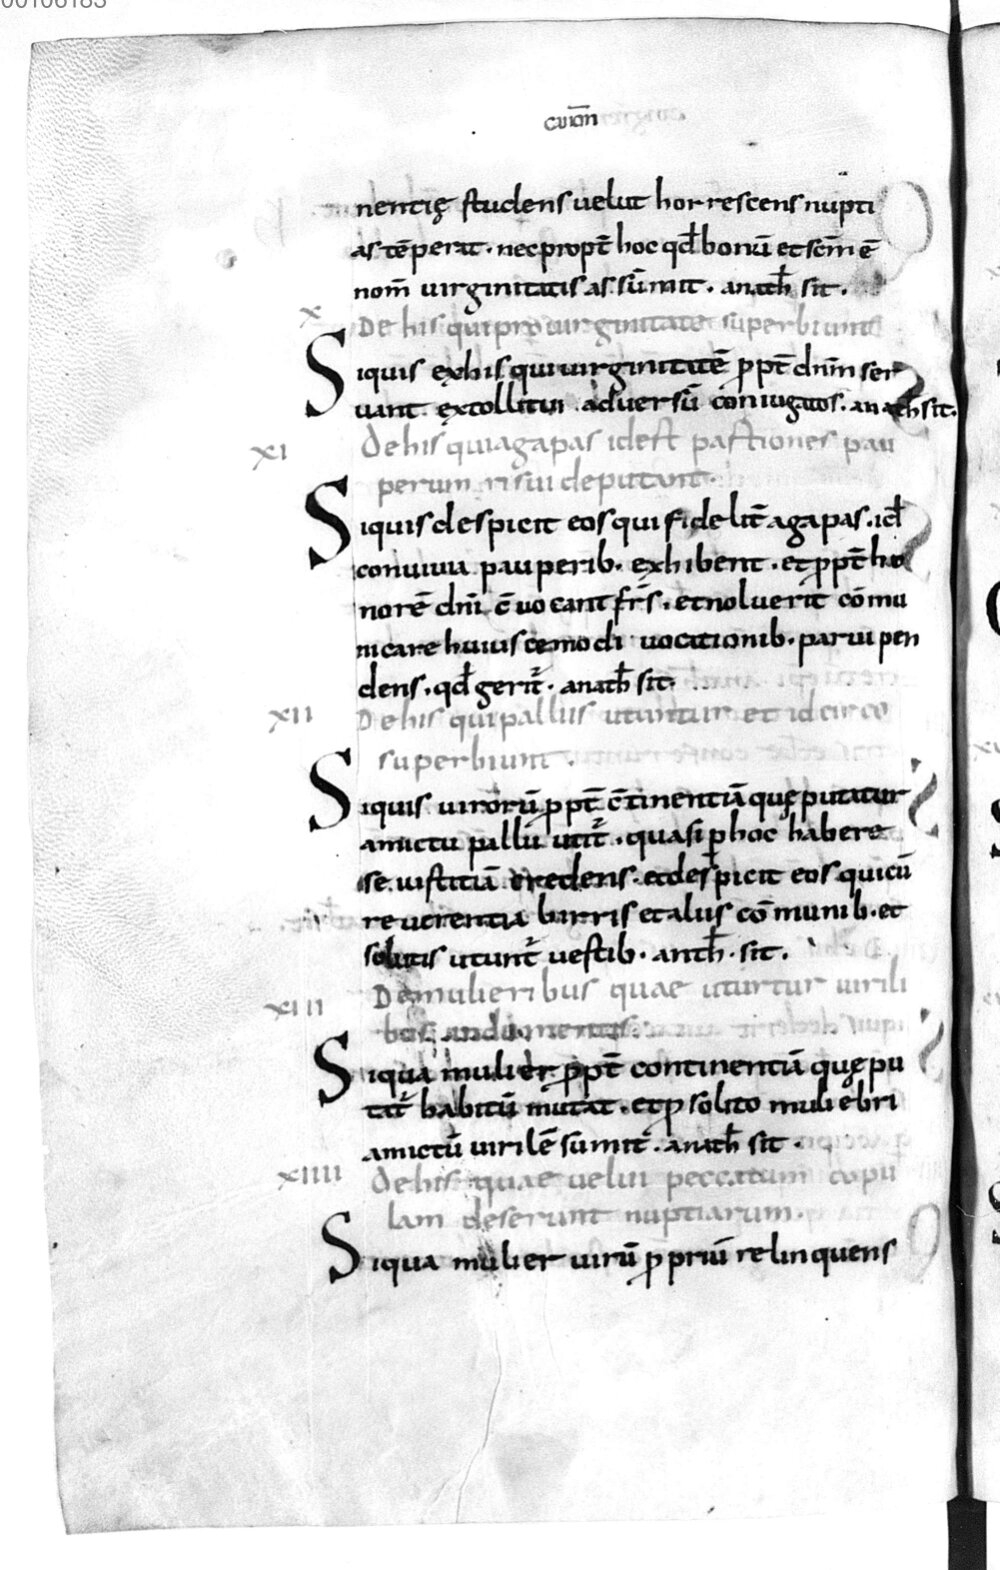 00106183
canōn
nentię studens uelut horrescens nupti
as tēperat. nec propt̄ hoc qđ bonū et scm̄ ē
nom̄ uirginitatis assūmit. anath̄ sit.
X De his qui pro uirginitate superbiunt
Siquis ex his qui uirginitatē ꝓpt̄ dnm̄ ser
uant extollitur aduersū coniugatos. anath sit.
XI De his qui agapas id est pastiones pau
perum risui deputant.
Siquis despicit eos qui fidelit̄ agapas. id̄
conuiuia pauperib. exhibent. et ꝓpt̄ ho
norē dn̄i c̄uocant fr̄s. et noluerit cōmu
nicare huiuscemodi uocationib. parui pen
dens. qđ gerit̄. anath̄ sit.
XII De his qui palliis utuntur et idcirco
superbiunt.
Siquis uirorū ꝓpt̄ c̄tinentiā quę putatur
amictu pallii utit̄. quasi p hoc habere
se iustitiā credens. et despicit eos qui cū
reuerentia birris et aliis cōmunib. et
solitis utunt̄ uestib. anth̄. sit.
XIII De mulieribus quae utuntur uirili
bus indumentis.
Siqua mulier ꝓpt̄ continentiā quę pu
tat̄ habitū mutat. et ꝓ solito muliebri
amictū uirilē sumit. anath̄ sit.
XIIII De his quae uelut peccatum copu
lam deserunt nuptiarum.
Siqua mulier uirū ꝓpriū relinquens